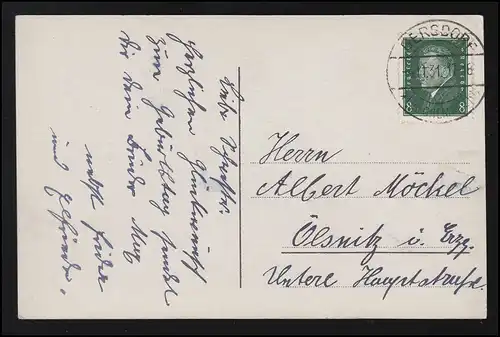 Liebe Schwester!
Herzlichen Glückwunsch
zum Geburtstag sendet
Dir Dein Bruder Max
nebst Frieda
und Elfriede.
GERSDORF
8 8
Herrn
Albert Möckel
Ölsnitz i. Erzg.
Untere Hauptstraße.